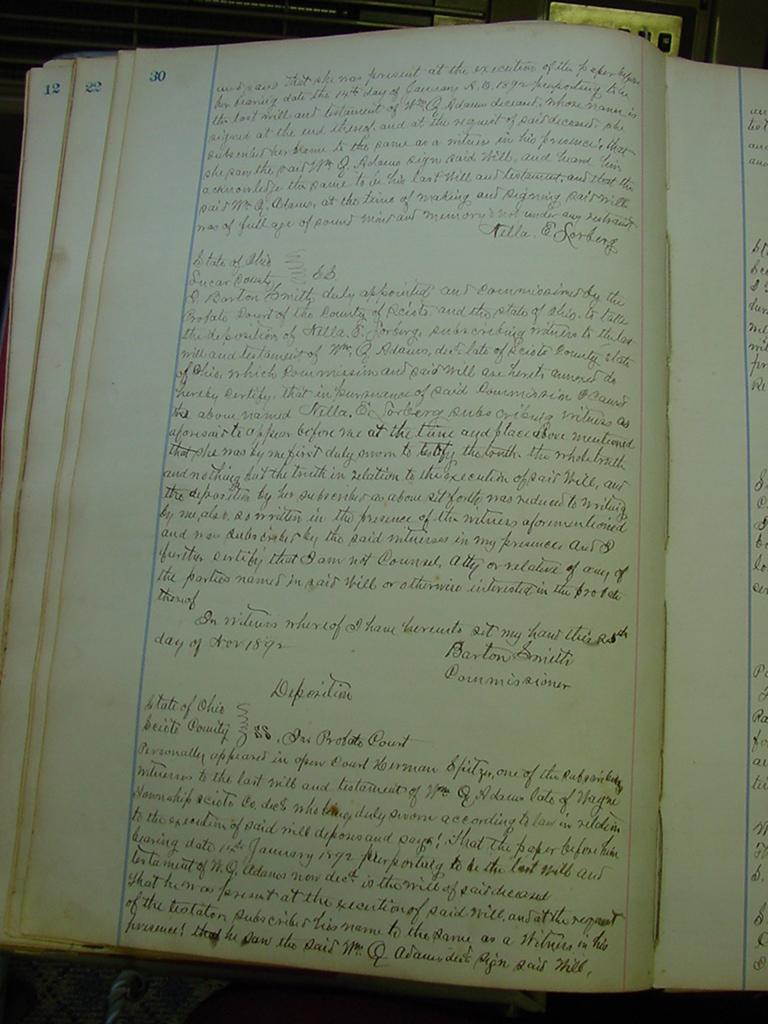 12 22 30
and says that she was present at the execution of the paper before
her bearing date the 14th day of January A.D. 1892 purporting to be
the last will and testament of Wm Q Adams deceased, whose name is
signed at the end thereof, and at the request of said deceased, she
subscribed her name to the same as a witness in his presence, that
she saw the said Wm Q. Adams sign said Will, and heard him
acknowledge the same to be his last Will and testament, and that the
said Wm Q. Adams, at the time of making and signing said will
was of full age of sound mind and memory & not under any restraint
Nella. E. Sorberg
State of Ohio
Lucas County SS
I, Barton Smith, duly appointed and commissioned by the
Probate Court of the County of Scioto, and the state of Ohio, to take
the deposition of Nella. E. Sorberg, subscribing witness to the las
will and testament of Wm. Q Adams, decd. late of Scioto County State
of Ohio, which Commission and said Will are hereto annexed do
hereby Certify, that in pursuance of said Commission I caused
the above named Nella. E. Sorberg subscribing witness as
aforesaid to appear before me at the time and place above mentioned
that she was by me first duly sworn to testify the truth the whole truth
and nothing but the truth in relation to the execution of said Will, and
the deposition by her subscribed as above set forth was reduced to writing
by me, also, so written in the presence of the witness aforementioned
and was subscribed by the said witnesses in my presence And I
further certify that I am not Counsel, Atty or relative of any of
the parties named in said Will or otherwise interested in the probate
thereof
In witness whereof I have hereunto set my hand this
day of Nov 1892
Barton Smith
Commissioner
Deposition
State of Ohio
Scioto County SS, In Probate Court
Personally appeared in open Court Herman Spitzer, one of the subscribing
witnesses to the last will and testament of Wm Q. Adams late of Wayne
Township Scioto Co. decd who being duly sworn according to law in relation
to the execution of said will deposes and says! That the paper before him
bearing date 14th January 1892 purporting to be the last Will and
testament of W. Q. Adams now decd. is the will of said deceased
that he was present at the execution of said Will, and at the request
of the testator subscribed his name to the same as a Witness in his
presence! that he saw the said Wm. Q Adams, decd sign said Will,